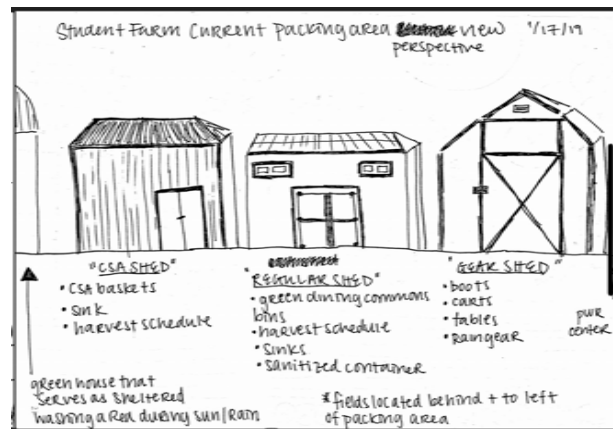 Student Farm Current Packing area view 1/17/19
perspective
"CSA SHED"
• CSA baskets
• sink
• harvest schedule
"REGULAR SHED"
• green dining commons
bins
• harvest schedule
• sinks
• sanitized container
"GEAR SHED"
• boots
• carts
• tables
• raingear
pwr
center
green house that
serves as sheltered
washing area during sun/rain
* fields located behind + to left
of packing area